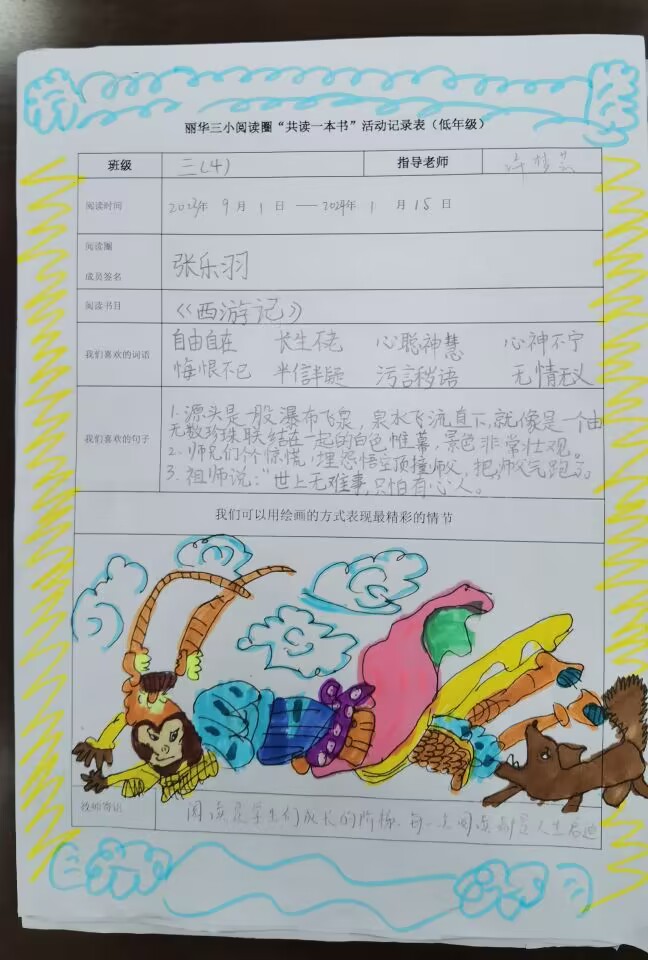 丽华三小阅读圈“共读一本书”活动记录表（低年级）
班级 三（4） 指导老师 许梦芸
阅读时间 2023年 9月 1日 — 2024年 1月 15日
阅读圈
成员签名 张乐羽
阅读书目 《西游记》
我们喜欢的词语 自由自在 长生不老 心聪神慧 心神不宁
悔恨不已 半信半疑 污言秽语 无情无义
我们喜欢的句子
1. 源头是一股瀑布飞泉，泉水飞流直下，就像是一个由
无数珍珠联结在一起的白色帷幕，景色非常壮观。
2. 师兄们个个惊慌，埋怨悟空顶撞师父，把师父气跑了。
3. 祖师说：“世上无难事，只怕有心人。
我们可以用绘画的方式表现最精彩的情节
教师寄语 阅读是学生们成长的阶梯，每一次阅读都是人生